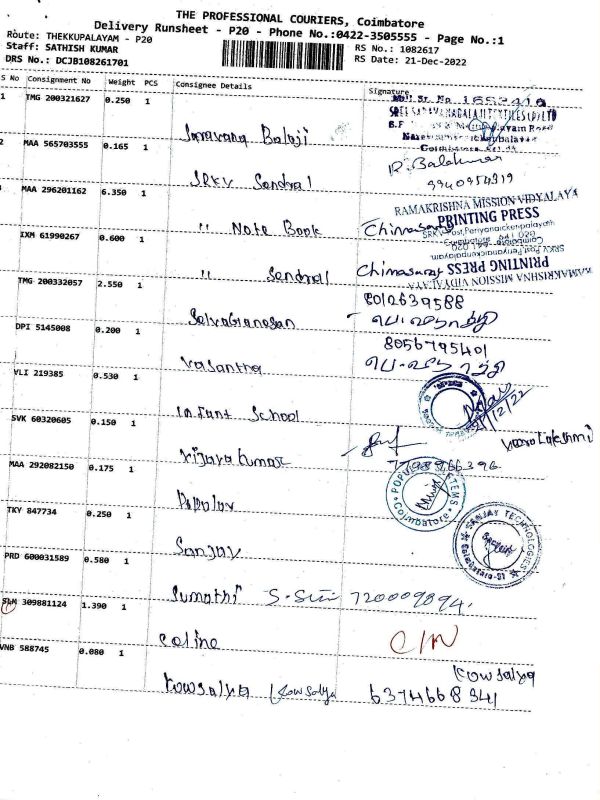 THE PROFESSIONAL COURIERS, Coimbatore
Delivery Runsheet - P20 - Phone No.:0422-3505555 - Page No.:1
Route: THEKKUPALAYAM - P20
RS No.: 1082617
Staff: SATHISH KUMAR
RS Date: 21-Dec-2022
DRS No.: DCJB108261701
S No Consignment No Weight PCS Consignee Details Signature
1 TMG 200321627 0.250 1
Saravana Balaji
2 MAA 565703555 0.165 1
R. Balakumar
SRKV Sandral
9940954919
MAA 296201162 6.350 1
RAMAKRISHNA MISSION VIDYALAYA
PRINTING PRESS
" Note Book
IXM 61990267 0.600 1
SRKV Post, Periyanaickenpalayam
PRINTING PRESS
RAMAKRISHNA MISSION VIDYALAYA
" Sandral
TMG 200332057 2.550 1
8012639588
Selvaganesan
DPI 5145008 0.200 1
8056795401
Vasantha
VLI 219385 0.530 1
Infant School
SVK 60320605 0.150 1
Vijayakumar
MAA 292082150 0.175 1
Popular
POPULAR SYSTEMS
Coimbatore
TKY 847734 0.250 1
Sanjay
SANJAY TECHNOLOGIES
PRD 600031589 0.580 1
Sumathi
309881124 1.390 1
Celine
VNB 588745 0.080 1
Kowsalya
Kowsalya Kowsalya 6374668341